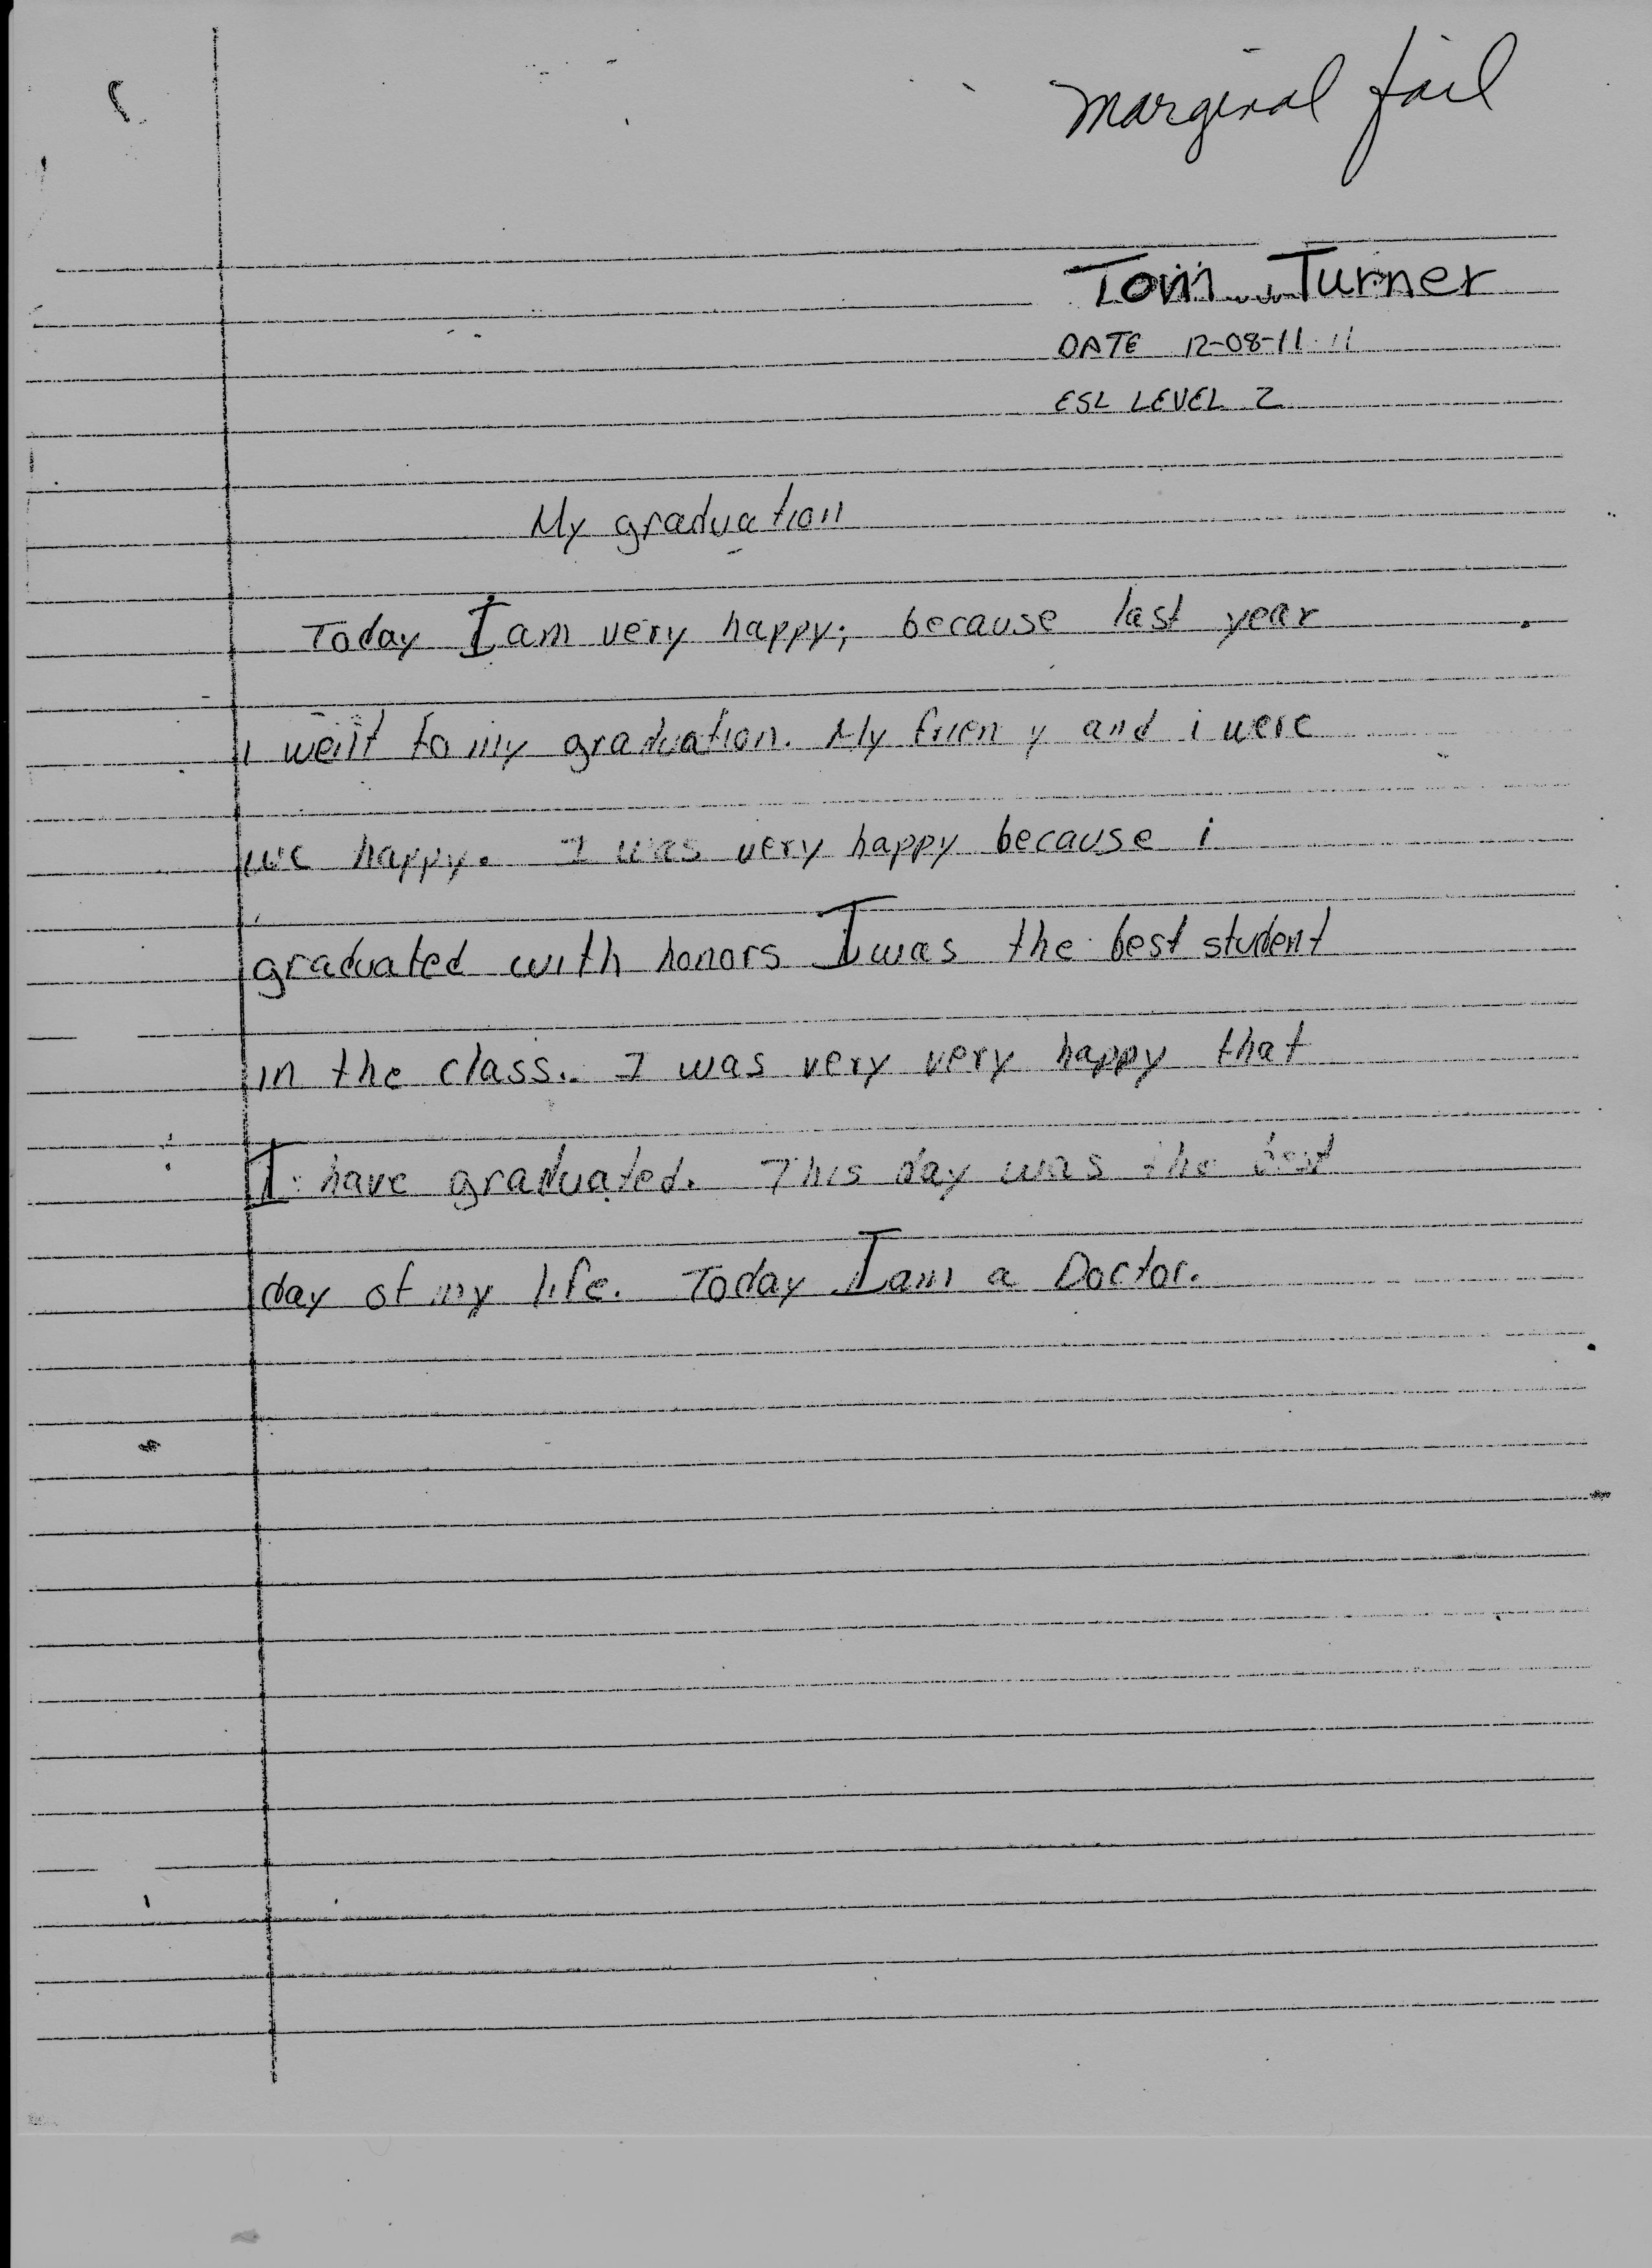 marginal fail
Tom Turner
DATE 12-08-11
ESL LEVEL 2
My graduation
Today I am very happy; because last year
i went to my graduation. My frien y and i were
we happy. I was very happy because i
graduated with honors I was the best student
in the class. I was very very happy that
I have graduated. This day was the best
day of my life. Today I am a Doctor.